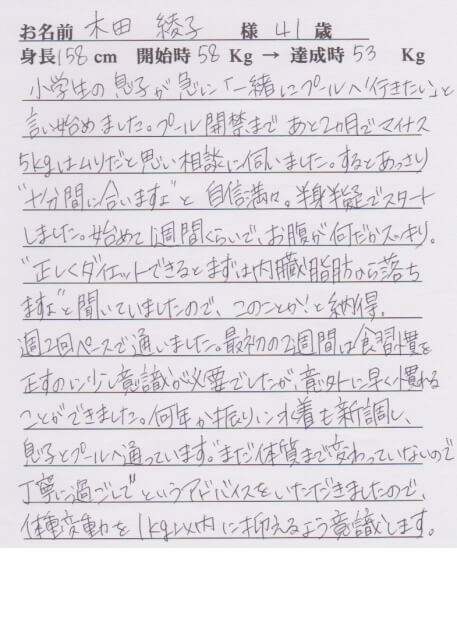 お名前 木田 綾子 様 41 歳
身長158cm 開始時58Kg → 達成時53 Kg
小学生の息子が急に「一緒にプールへ行きたい」と
言い始めました。プール開禁まであと2ヵ月でマイナス
5kgはムリだと思い相談に伺いました。するとあっさり
"十分間に合いますよ"と自信満々。半身半疑でスタート
しました。始めて1週間くらいで、お腹が何だかスッキリ。
"正しくダイエットできるとまずは内臓脂肪から落ち
ますよ"と聞いていましたので、このことか!と納得。
週2回ペースで通いました。最初の2週間は食習慣を
正すのに少し意識が必要でしたが、意外に早く慣れる
ことができました。何年か振りに水着も新調し、
息子とプールへ通っています。"まだ体質まで変わっていないので
丁寧に過ごして"というアドバイスをいただきましたので、
体重変動を1kg以内に抑えるよう意識します。